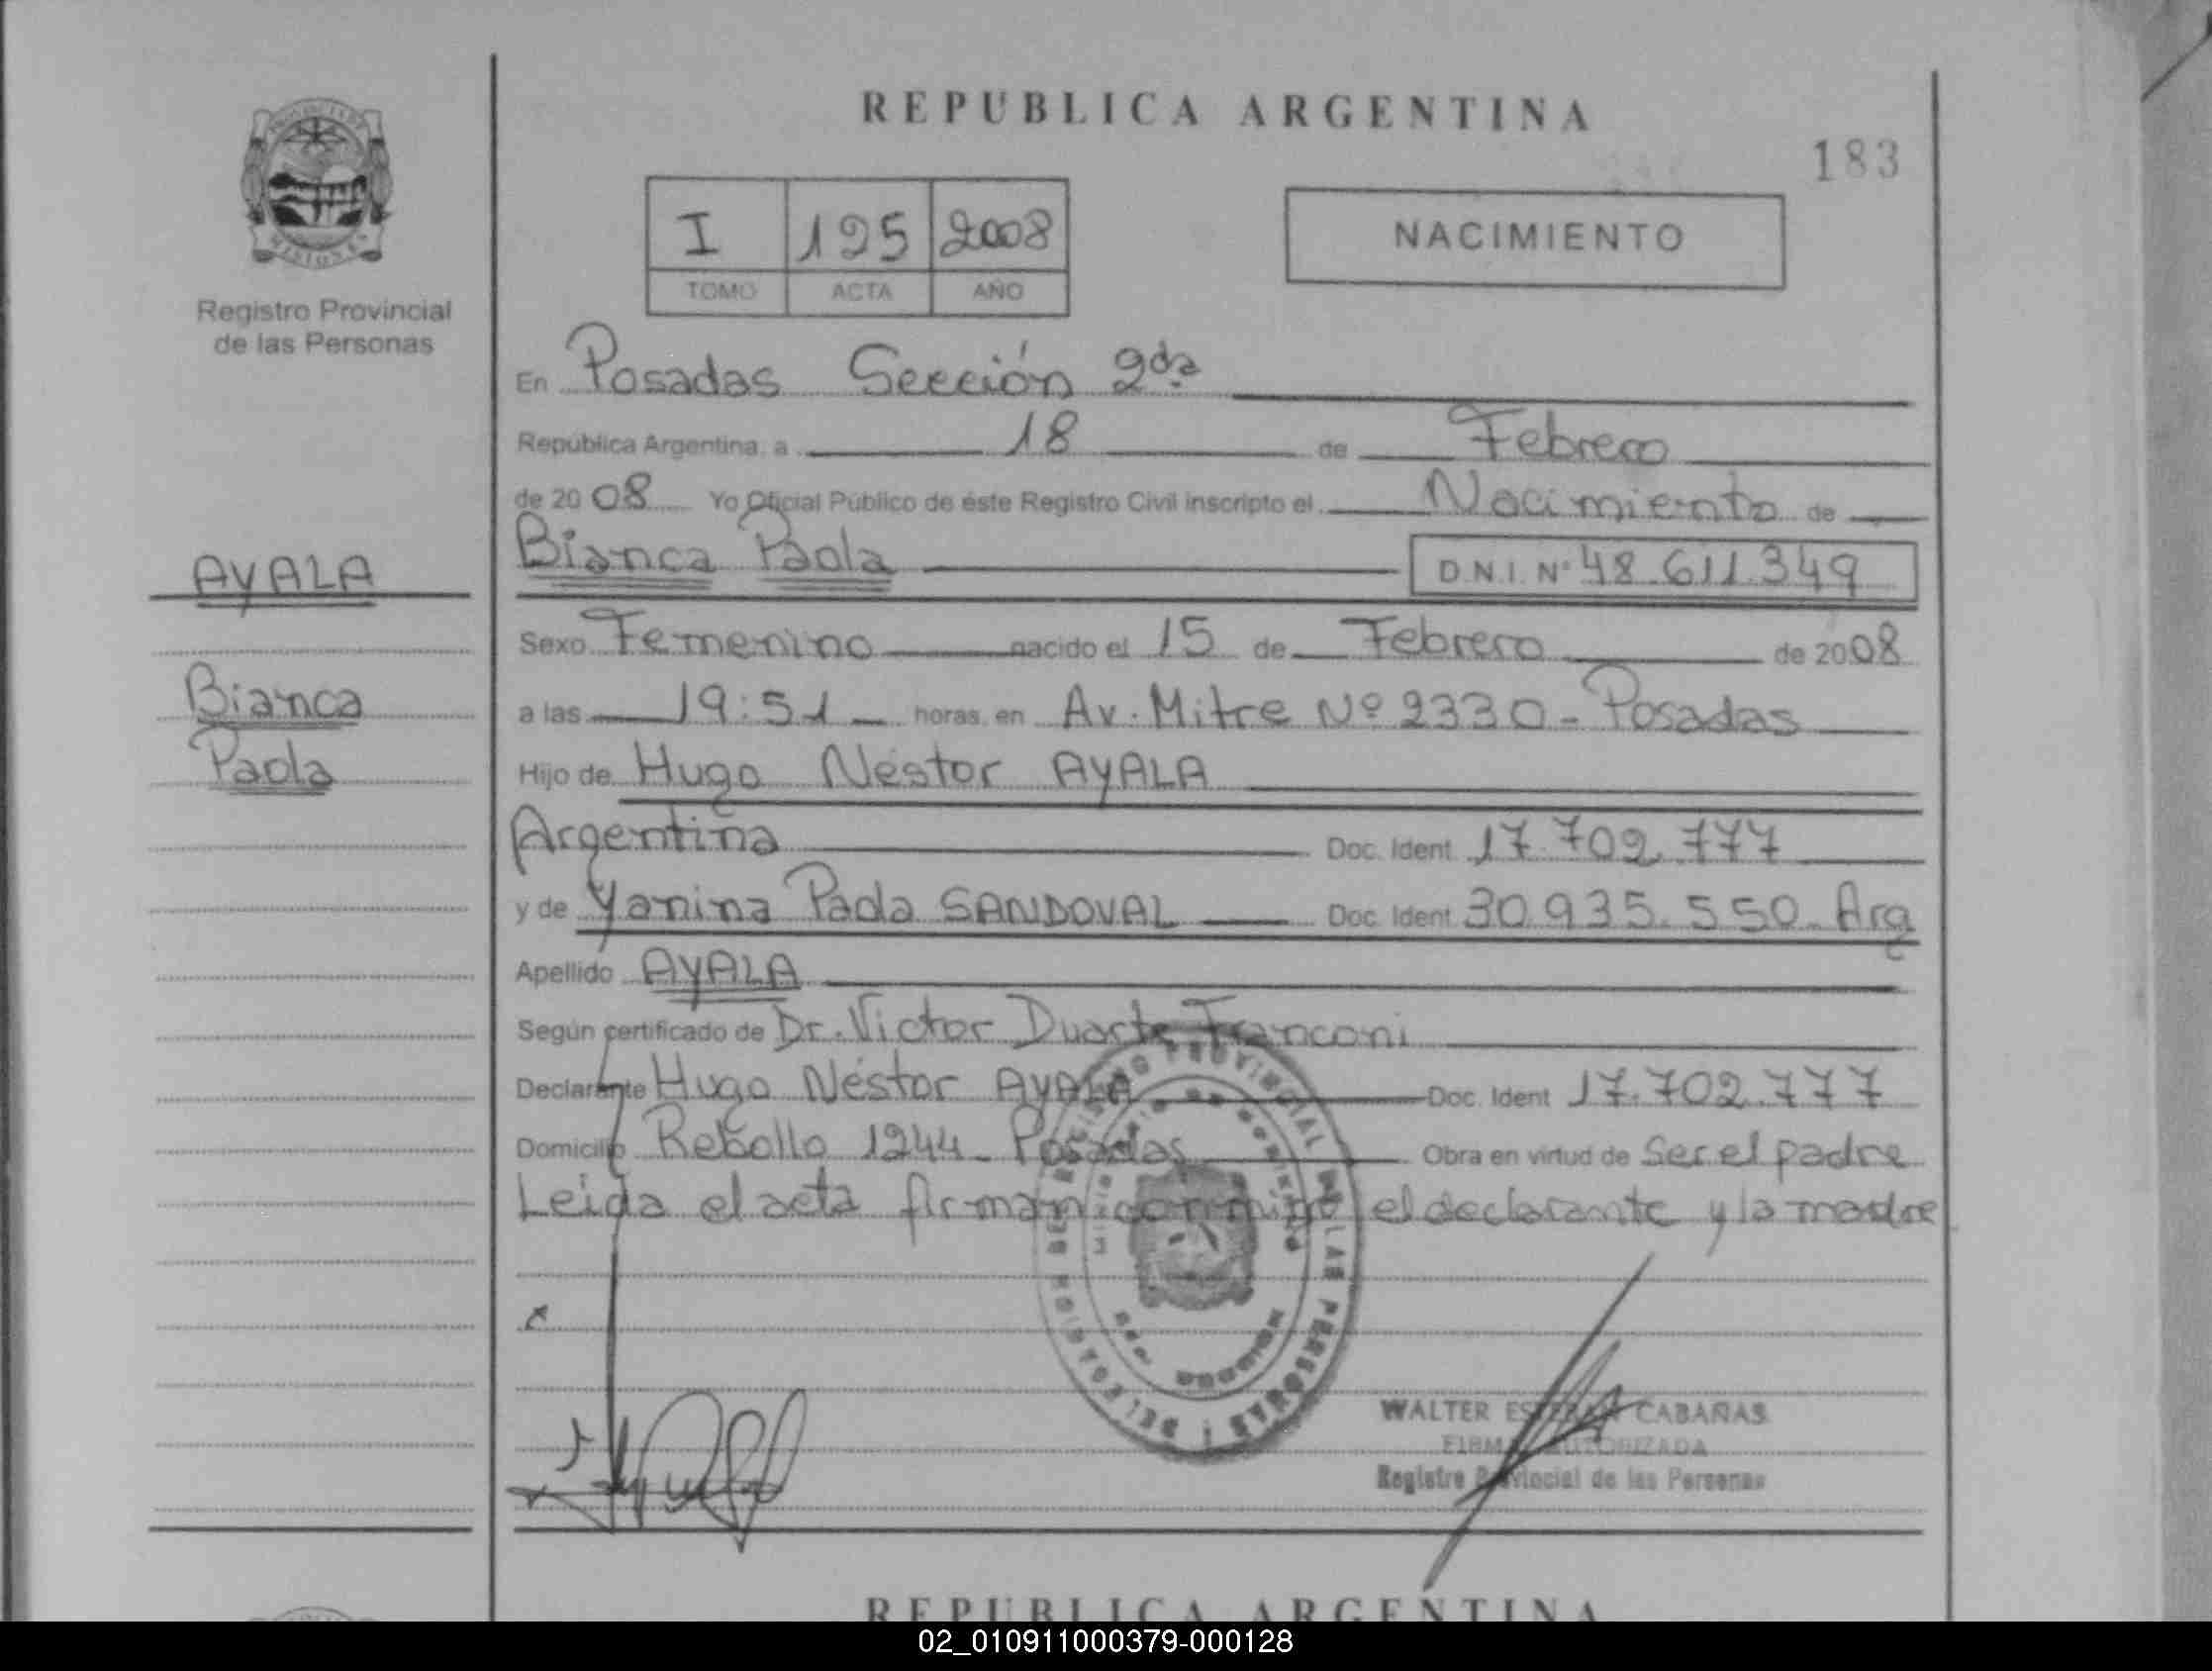 REPUBLICA ARGENTINA
183
I 125 2008
TOMO ACTA AÑO
NACIMIENTO
Registro Provincial
de las Personas
En Posadas Sección 2da
República Argentina, a 18 de Febrero
de 2008 Yo Oficial Público de éste Registro Civil inscripto el Nacimiento de
Bianca Paola D.N.I. Nº 48.611.349
AYALA
Bianca
Paola
Sexo Femenino nacido el 15 de Febrero de 2008
a las 19:51 horas, en Av. Mitre Nº 2330 - Posadas
Hijo de Hugo Néstor AYALA
Argentina Doc. Ident 17.702.777
y de Yanina Paola SANDOVAL Doc. Ident 30.935.550 Arg
Apellido AYALA
Según certificado de Dr. Victor Duarte Franconi
Declarante Hugo Néstor AYALA Doc. Ident 17.702.777
Domicilio Rebollo 1244 - Posadas Obra en virtud de Ser el padre
Leida el acta firman conmigo el declarante y la madre
WALTER ESTEBAN CABAÑAS
FIRMA AUTORIZADA
Registro Provincial de las Personas
REPUBLICA ARGENTINA
02_010911000379-000128